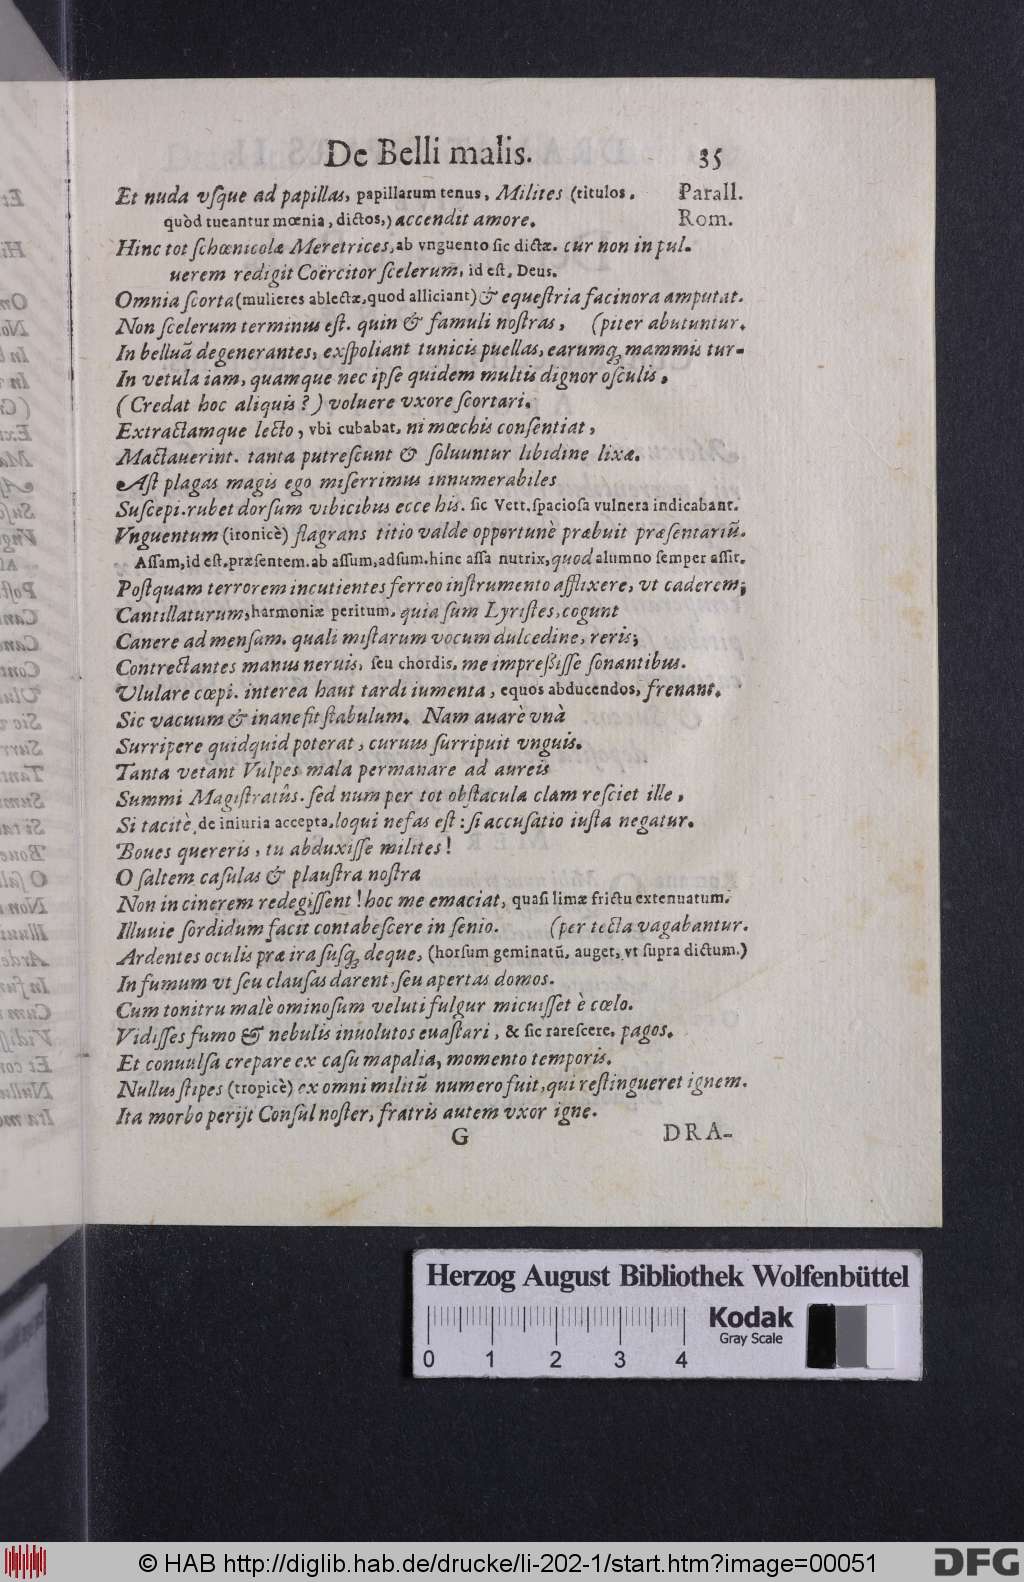 De Belli malis. 35
Et nuda vſque ad papillas, papillarum tenus, Milites (titulos, Parall.
quòd tueantur mœnia, dictos,) accendit amore. Rom.
Hinc tot ſchœnicolæ Meretrices, ab vnguento ſic dictæ. cur non in pul-
uerem redigit Coërcitor ſcelerum, id eſt, Deus.
Omnia ſcorta (mulieres ablectæ, quod alliciant) & equeſtria facinora amputat.
Non ſcelerum terminus eſt. quin & famuli noſtras, (piter abutuntur.
In belluã degenerantes, exſpoliant tunicis puellas, earumq́; mammis tur-
In vetula iam, quamque nec ipſe quidem multis dignor oſculis,
(Credat hoc aliquis?) voluere vxore ſcortari.
Extractamque lecto, vbi cubabat, ni mœchis conſentiat,
Mactauerint. tanta putreſcunt & ſoluuntur libidine lixæ.
Aſt plagas magis ego miſerrimus innumerabiles
Suſcepi. rubet dorſum vibicibus ecce his. ſic Vett. ſpacioſa vulnera indicabant.
Vnguentum (ironicè) flagrans titio valde opportunè præbuit præſentariũ.
Aſſam, id eſt, præſentem. ab aſſum, adſum. hinc aſſa nutrix, quod alumno ſemper aſſit.
Poſtquam terrorem incutientes ferreo inſtrumento afflixere, vt caderem;
Cantillaturum, harmoniæ peritum, quia ſum Lyriſtes, cogunt
Canere ad menſam. quali miſtarum vocum dulcedine, reris;
Contrectantes manus neruis, ſeu chordis, me impreßiſſe ſonantibus.
Vlulare cœpi. interea haut tardi iumenta, equos abducendos, frenant.
Sic vacuum & inane fit ſtabulum. Nam auarè vnà
Surripere quidquid poterat, curuus ſurripuit vnguis.
Tanta vetant Vulpes mala permanare ad aureis
Summi Magiſtratûs. ſed num per tot obſtacula clam reſciet ille,
Si tacitè, de iniuria accepta, loqui nefas eſt: ſi accuſatio iuſta negatur.
Boues quereris, tu abduxiſſe milites!
O ſaltem caſulas & plauſtra noſtra
Non in cinerem redegiſſent! hoc me emaciat, quaſi limæ frictu extenuatum.
Illuuie ſordidum facit contabeſcere in ſenio. (per tecta vagabantur.
Ardentes oculis præ ira ſuſq́; deque, (horſum geminatũ, auget, vt ſupra dictum.)
In fumum vt ſeu clauſas darent, ſeu apertas domos.
Cum tonitru malè ominoſum veluti fulgur micuiſſet è cœlo.
Vidiſſes fumo & nebulis inuolutos euaſtari, & ſic rareſcere, pagos.
Et conuulſa crepare ex caſu mapalia, momento temporis.
Nullus ſtipes (tropicè) ex omni militũ numero fuit, qui reſtingueret ignem.
Ita morbo perijt Conſul noſter, fratris autem vxor igne.
G DRA-
Herzog August Bibliothek Wolfenbüttel
Kodak
Gray Scale
0 1 2 3 4
© HAB http://diglib.hab.de/drucke/li-202-1/start.htm?image=00051
DFG